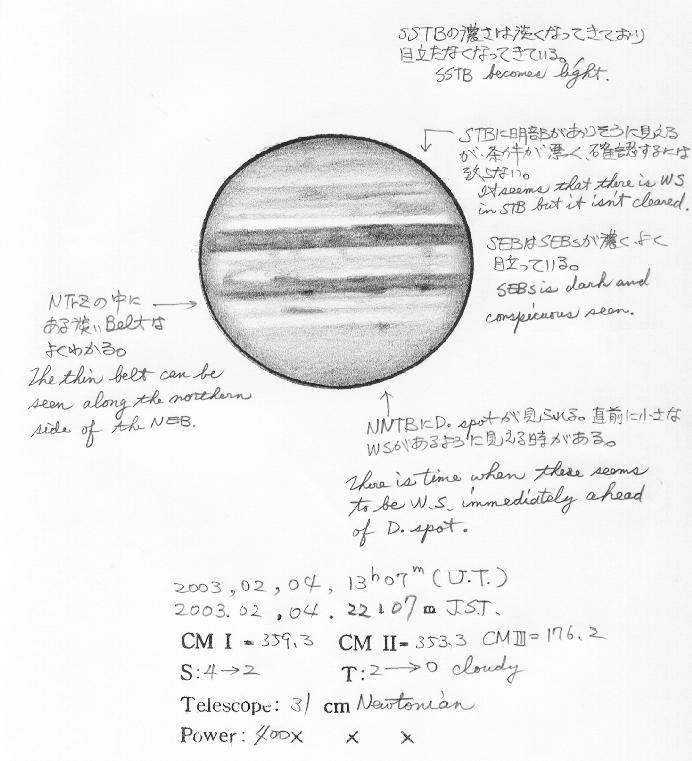 SSTBの濃さは淡くなってきており
目立たなくなってきている。
SSTB becomes light.
STBに明部Bがありそうに見える
が、条件が悪く、確認するには
致らない。
It seems that there is WS
in STB but it isn't cleared.
SEBはSEBsが濃く、よく
目立っている。
SEBs is dark and
conspicuous seen.
NTrZの中に
ある淡いBeltは
よくわかる。
The thin belt can be
seen along the northern
side of the NEB.
NNTBにD. spotが見られる。直前に小さな
WSがあるように見える時がある。
There is time when there seems
to be W.S. immediately ahead
of D. spot.
2003, 02, 04, 13h07m (U.T.)
2003. 02, 04. 22:07m J.S.T.
CM I = 359.3 CM II= 353.3 CMIII= 176.2
S: 4→2 T: 2→0 cloudy
Telescope: 31 cm Newtonian
Power: 400× × ×